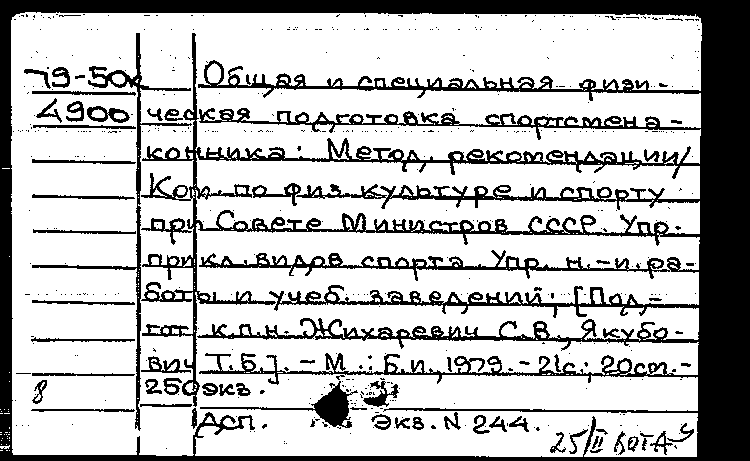 79-50к Общая и специальная физи-
4900 ческая подготовка спортсмена-
конника: Метод. рекомендации/
Ком. по физ. культуре и спорту
при Совете Министров СССР. Упр.
прикл. видов спорта. Упр. н.-и. ра-
боты и учеб. заведений; [Под-
гот. к.п.н. Жихаревич С.В., Якубо-
вич Т.Б.]. - М.: Б.и., 1979. - 21с.; 20см. -
8 250экз.
Дсп. Экз. N 244.
25/II